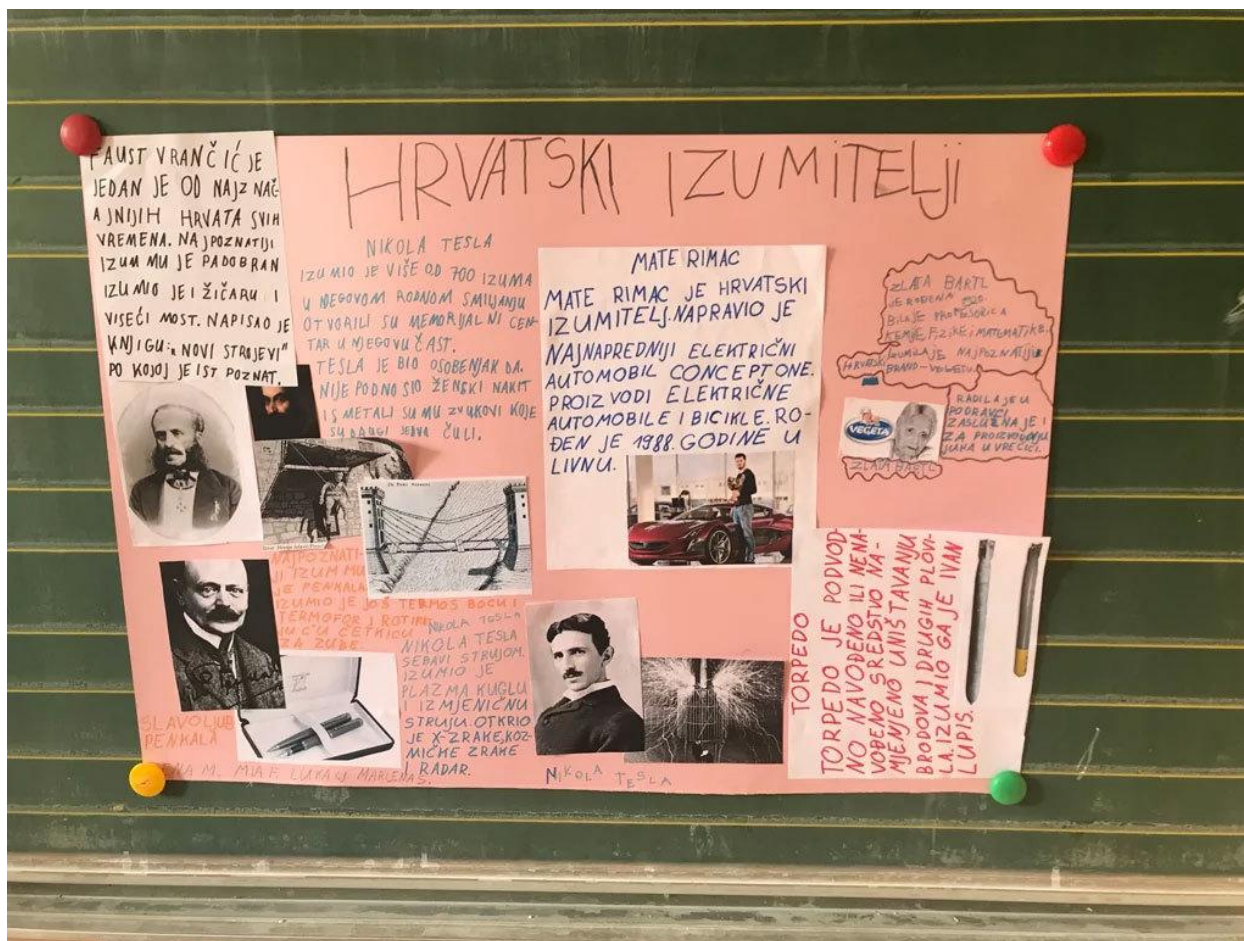 HRVATSKI IZUMITELJI
FAUST VRANČIĆ JE
JEDAN JE OD NAJZNAČ-
AJNIJIH HRVATA SVIH
VREMENA. NAJPOZNATIJI
IZUM MU JE PADOBRAN
IZUMIO JE I ŽIČARU I
VISEĆI MOST. NAPISAO JE
KNJIGU: „NOVI STROJEVI"
PO KOJOJ JE IST POZNAT.
NIKOLA TESLA
IZUMIO JE VIŠE OD 700 IZUMA
U NJEGOVOM RODNOM SMILJANJU
OTVORILI SU MEMORIJALNI CEN-
TAR U NJEGOVU ČAST.
TESLA JE BIO OSOBENJAK DA.
NIJE PODNOSIO ŽENSKI NAKIT
I SMETALI SU MU ZVUKOVI KOJE
SU DRUGI JEDVA ČULI.
MATE RIMAC
MATE RIMAC JE HRVATSKI
IZUMITELJ. NAPRAVIO JE
NAJNAPREDNIJI ELEKTRIČNI
AUTOMOBIL CONCEPT ONE.
PROIZVODI ELEKTRIČNE
AUTOMOBILE I BICIKLE. RO-
ĐEN JE 1988. GODINE U
LIVNU.
ZLATA BARTL
JE ROĐENA 1920.
BILA JE PROFESORICA
KEMIJE, FIZIKE I MATEMATIKE.
IZUMILA JE NAJPOZNATIJI
HRVATSKI
BRAND-VEGETU.
RADILA JE U
PODRAVCI
ZASLUŽNA JE I
ZA PROIZVODNJU
JUHA U VREĆICI.
VEGETA
ZLATA BARTL
NAJPOZNATI-
JI IZUM MU
JE PENKALA
IZUMIO JE JOŠ TERMOS BOCU I
TERMOFOR I
ĆU ČETKICU
ZA ZUBE.
SLAVOLJUB
PENKALA
NIKOLA TESLA
NIKOLA TESLA
SE BAVI STRUJOM.
IZUMIO JE
PLAZMA KUGLU
I IZMJENIČNU
STRUJU. OTKRIO
JE X-ZRAKE, KOZ-
MIČKE ZRAKE
I RADAR.
NIKOLA TESLA
TORPEDO
TORPEDO JE PODVOD-
NO NAVOĐENO ILI NENA-
VOĐENO SREDSTVO NA-
MJENJENO UNIŠTAVANJU
BRODOVA I DRUGIH PLOVI-
LA. IZUMIO GA JE IVAN
LUPIS.
M. MIA F. LUKA Ć MARLENA S.